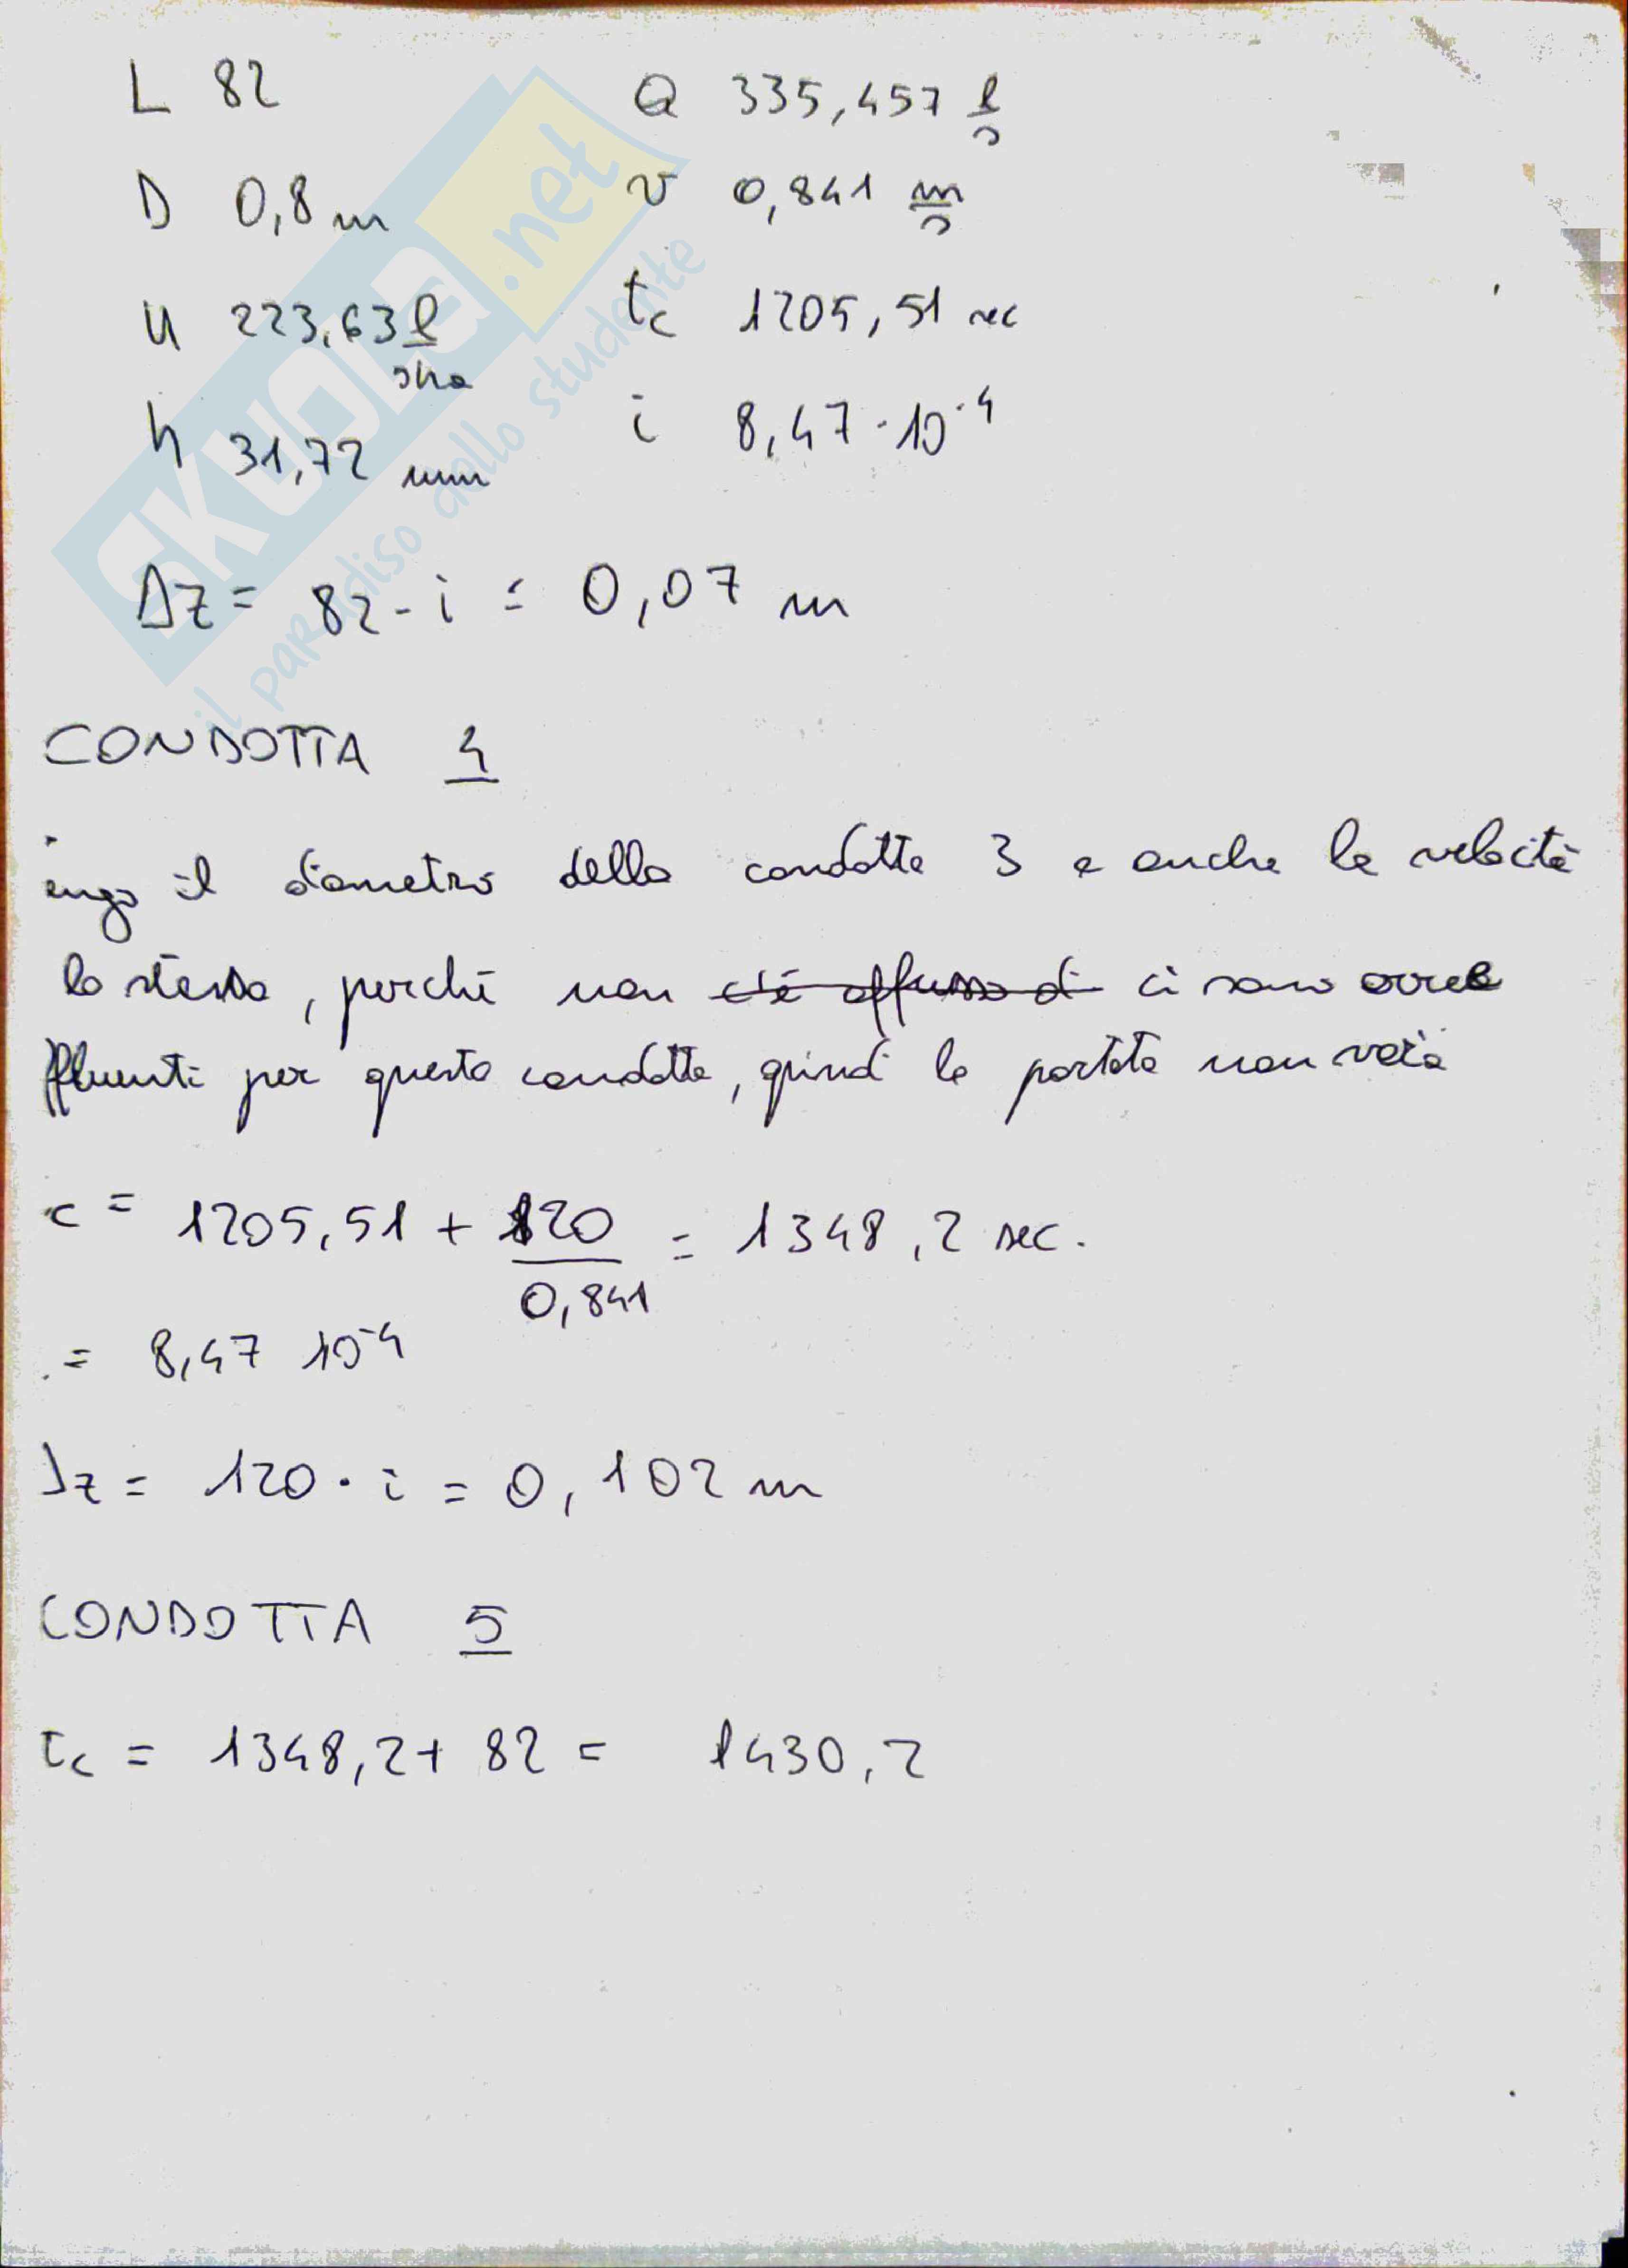 L 82 Q 335,457 l/s
D 0,8 m v 0,841 m/s
u 223,63 l/s ha
h 31,72 mm
tc 1205,51 sec
i 8,47 · 10⁻⁴
SKUOLA.net
il paradiso dello studente
Δz = 82 · i = 0,07 m
CONDOTTA 4
engo il diametro della condotta 3 e anche la velocità
la stessa, perché non c'è afflusso di ci sono aree
ffluenti per questa condotta, quindi la portata non varia
c = 1205,51 + 120/0,841 = 1348,2 sec.
= 8,47 10⁻⁴
Δz = 120 · i = 0,102 m
CONDOTTA 5
tc = 1348,2 + 82 = 1430,2